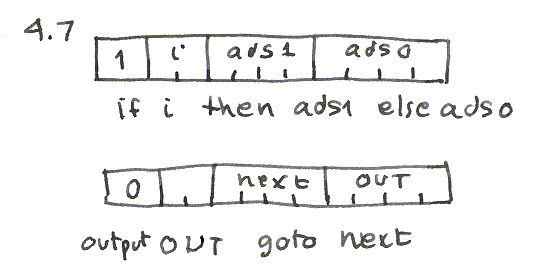 4.7
1 i ads1 ads0
if i then ads1 else ads0
0 next OUT
output OUT goto next